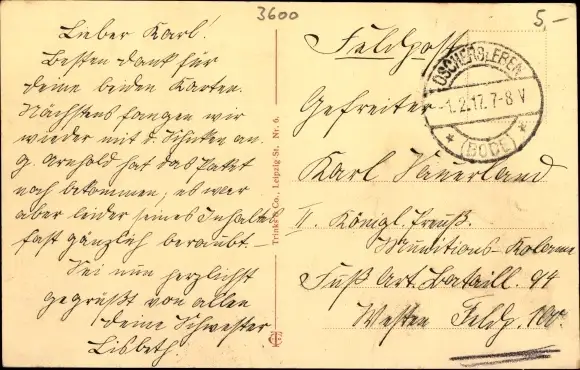 3600
5,-
Lieber Karl!
Besten Dank für
deine beiden Karten.
Nächstens fangen wir
wieder mit d. Schicken an.
G. Arnhold hat das Paket
noch bekommen, es war
aber leider seines Inhaltes
fast gänzlich beraubt. –
Sei nun herzlichst
gegrüßt von allen
deine Schwester
Lisbeth.
Trinks & Co., Leipzig St. Nr. 6.
Feldpost
OSCHERSLEBEN
-1.2.17. 7-8 V
* (BODE) *
Gefreiter
Karl Sauerland
II. Königl. Preuß.
Munitions-Kolonne
Fuß Art. Bataill. 94
Westen Feldp.